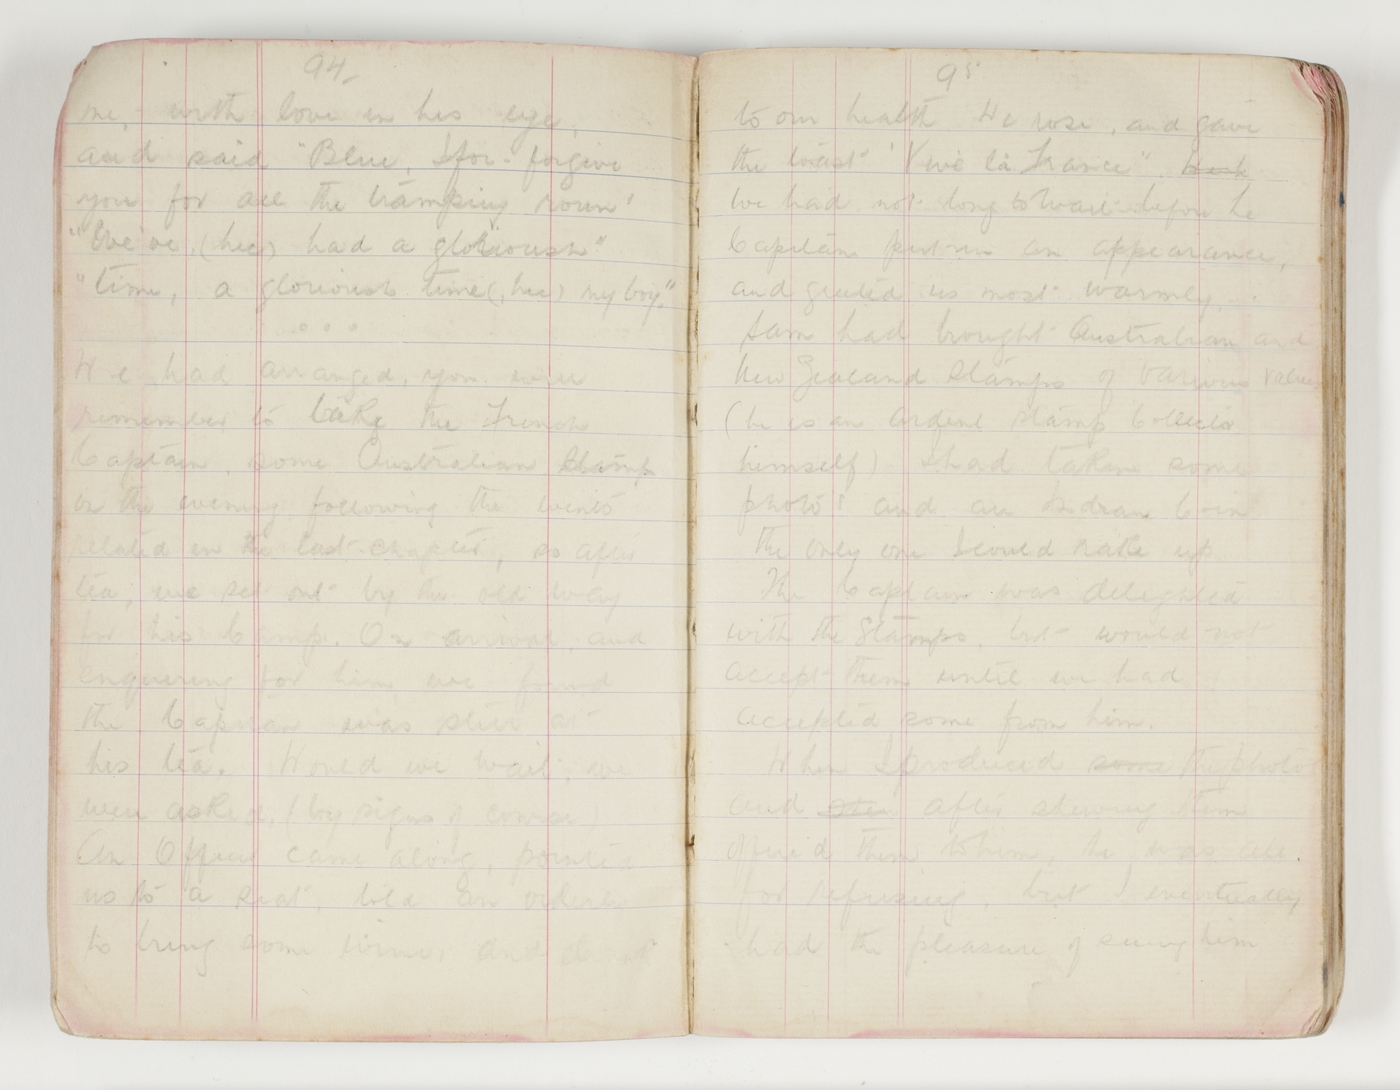 94
me, with love in his eye,
and said "Blue, I for - forgive
you for all the tramping roun'
"We've, (hic) had a glorioush"
"time, a glorioush time (, hic) my boy."
° ° °
We had arranged, you will
remember to take the French
Captain, some Australian stamps
on the evening following the events
related in the last chapter, so after
tea, we set out by the old way
for his Camp. On arrival, and
enquiring for him, we found
the Captain was still at
his tea. Would we wait, we
were asked, (by signs of course)
An Officer came along, pointed
us to a seat, told an orderly
to bring some wine, and drank
95
to our health He rose, and gave
the toast 'Vive la France".
We had not long to wait before the
Captain put in an appearance,
and greeted us most warmly.
Sam had brought Australian and
New Zealand Stamps of various values
(he is an ardent stamp collector
himself) I had taken some
photo's and an Indian Coin
the only one I could rake up
The Captain was delighted
with the Stamps, but would not
accept them until we had
accepted some from him.
When I produced some the photo
and after shewing them
offered them to him, he was all
for refusing, but I eventually
had the pleasure of seeing him